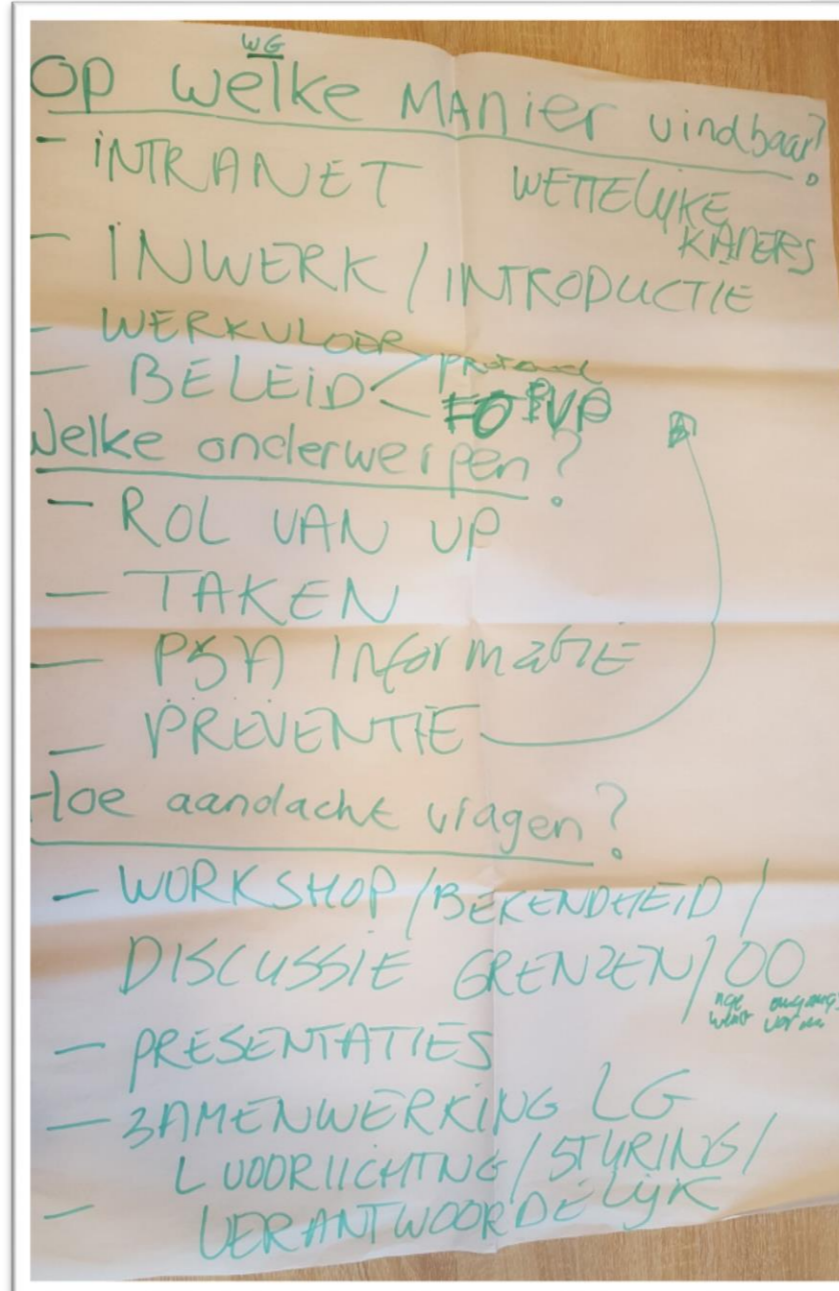 WG
Op welke MANier vindbaar?
- INTRANET WETTELIJKE
KADERS
- INWERK / INTRODUCTIE
- WERKVLOER
- BELEID < Protocol
PVP
Welke onderwerpen?
- ROL VAN VP
- TAKEN
- PSA InformatIE
- PREVENTIE
Hoe aandacht vragen?
- WORKSHOP / BEKENDHEID /
DISCUSSIE GRENZEN / OO
- PRESENTATIES
- SAMENWERKING LG
L VOORLICHTING / STURING /
- VERANTWOORDELIJK